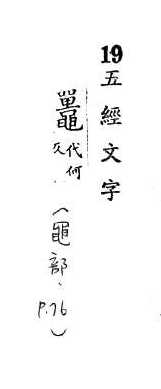 19五經文字
鼉代何反(黽部、P.76)